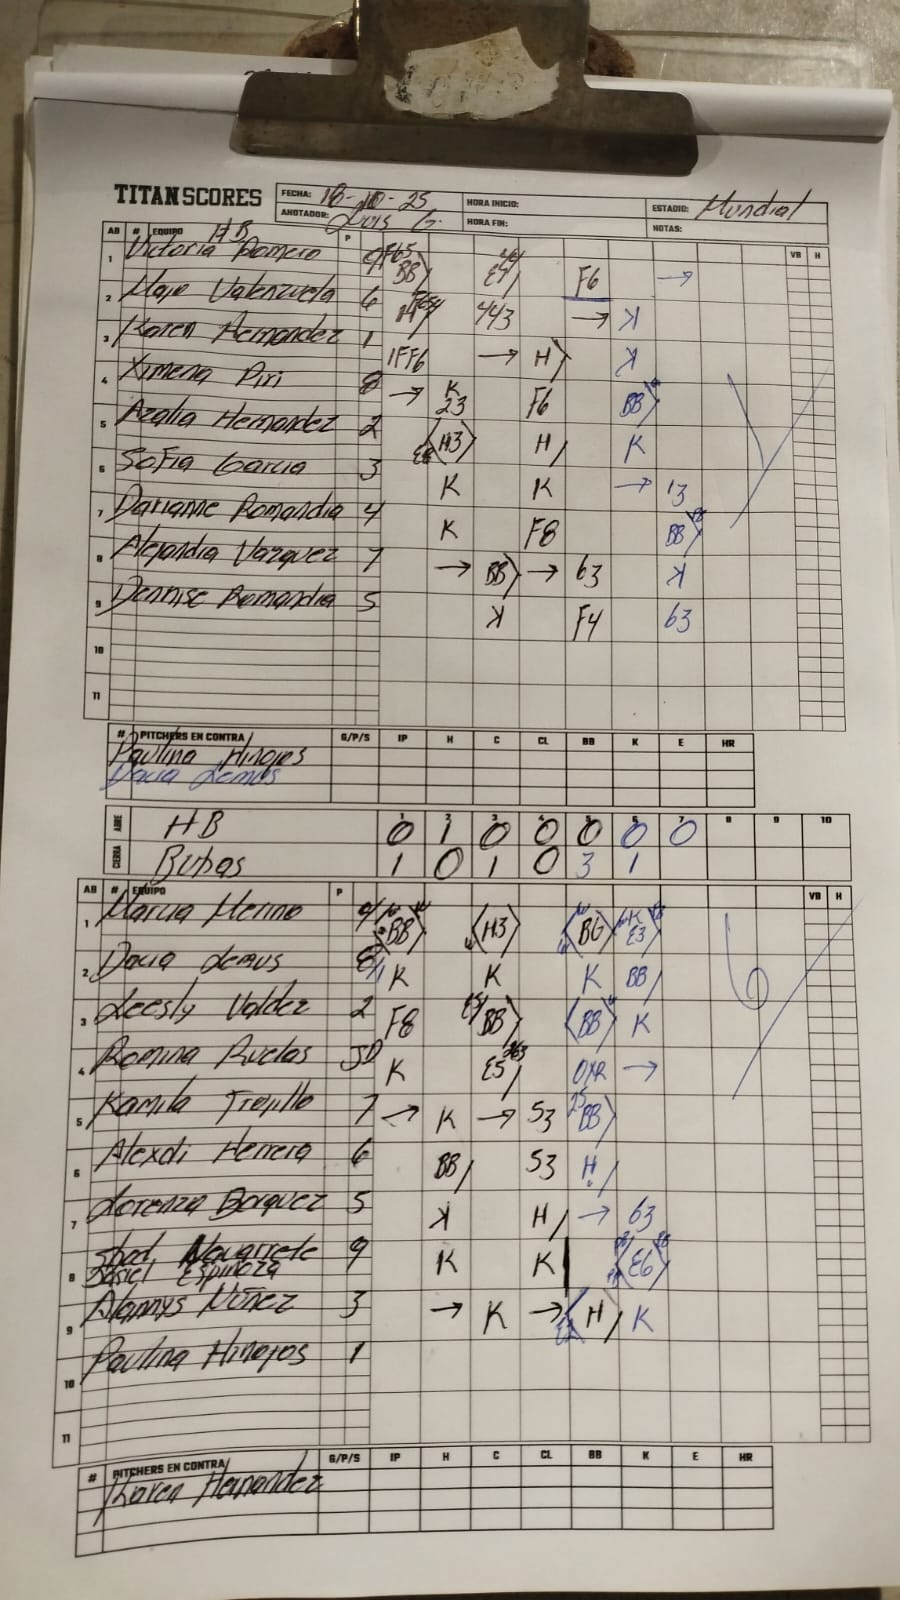 TITAN SCORES
FECHA: 18-10-25 HORA INICIO: ESTADIO: Mundial
ANOTADOR: Luis G. HORA FIN: NOTAS:
AB # EQUIPO HB P VB H
1 Victoria Romero 9 BB F6 →
2 Mayo Valenzuela 6 443 → K
3 Karen Hernandez 1 1FF6 → H K
4 Ximena Piri 8 → K 23 F6 BB
5 Azalia Hernandez 2 H3 H K
6 Sofia Garcia 3 K K → 13
7 Darianne Romandia 4 K F8 BB
8 Alejandra Vazquez 7 → BB → 63 K
9 Dennise Romandia 5 K F4 63
10
11
# PITCHERS EN CONTRA G/P/S IP H C CL BB K E HR
Paulina Hinojos
Dacia Lemus
1 2 3 4 5 6 7 8 9 10
ABRE HB 0 1 0 0 0 0 0
CIERRA Bubas 1 0 1 0 3 1
AB # EQUIPO P VB H
1 Marcia Merino 4 BB H3 K E3
2 Dacia Lemus 8 K K K BB
3 Leesly Valdez 2 F8 BB BB K
4 Romina Ruelas K E5 →
5 Kamila Trejillo 7 → K → 53 BB
6 Alexdi Herrera 6 BB 53 H
7 Lorenza Borquez 5 K H → 63
8 Navarrete 9 K K E6
Espinoza
9 Alannys Nuñez 3 → K → H K
10 Paulina Hinojos 1
11
# PITCHERS EN CONTRA G/P/S IP H C CL BB K E HR
Karen Hernandez